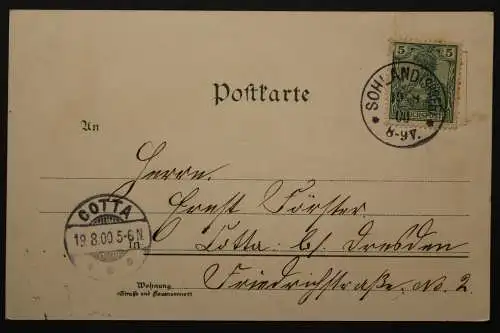 5 5
SOHLAND (SPREE)
19 8
00
8-9V.
Postkarte
An
Herrn
Ernst Förster
COTTA
19.8.00 5-6N
in Cotta b/ Dresden
Wohnung
(Straße und Hausnummer)
Friedrichstraße No. 2.